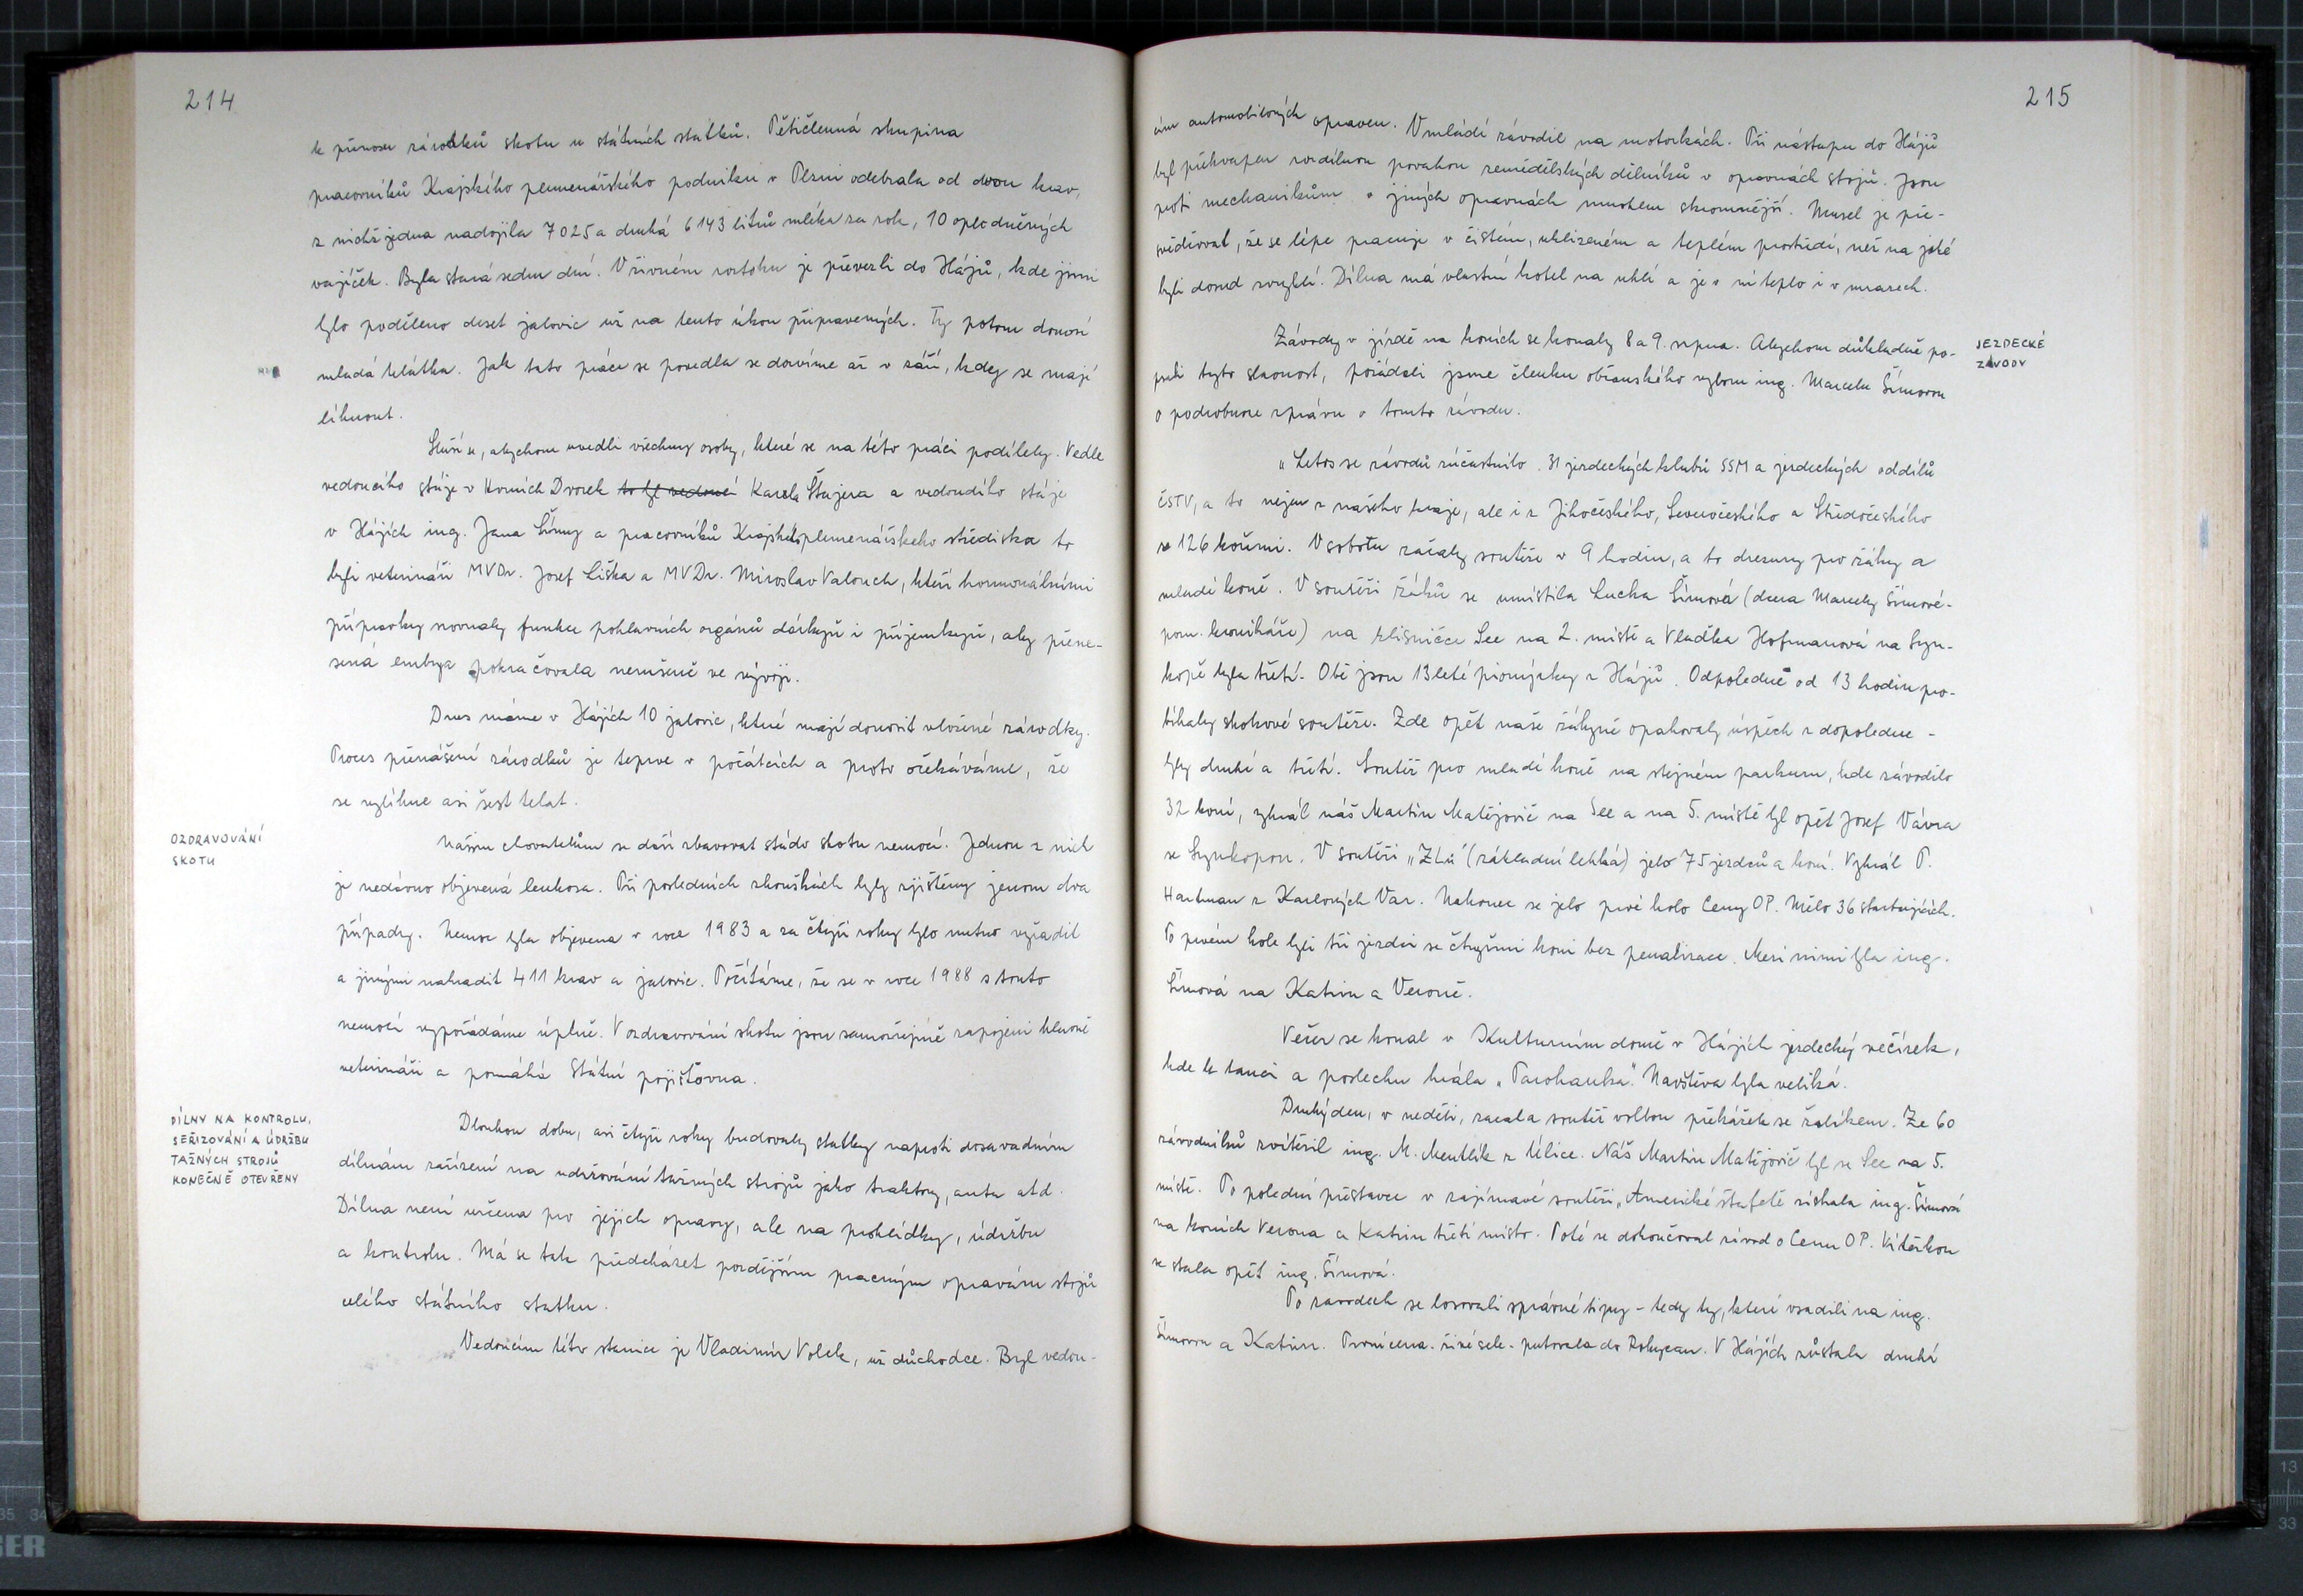 214
k přenosu zárodků skotu u státních statků. Pětičlenná skupina
pracovníků Krajského plemenářského podniku v Plzni odebrala od dvou krav,
z nichž jedna nadojila 7025 a druhá 6143 litrů mléka za rok, 10 oplodněných
vajíček. Byla stará sedm dní. V živném roztoku je převezli do Hájů, kde jimi
bylo poděleno deset jalovic už na tento úkon připravených. Ty potom donosí
mladá telátka. Jak tato práce se povedla se dozvíme až v září, kdy se mají
líhnout.
Sluší se, abychom uvedli všechny osoby, které se na této práci podílely. Vedle
vedoucího stáje v Horních Dvorek to byl vedoucí Karla Štajera a vedoucího stáje
v Hájích ing. Jana Šímy a pracovníků Krajského plemenářského střediska to
byli veterináři MVDr. Josef Liška a MVDr. Miroslav Valouch, kteří hormonálními
přípravky srovnaly funkce pohlavních orgánů dárkyň i příjemkyň, aby přene-
sená embrya pokračovala nerušeně ve vývoji.
Dnes máme v Hájích 10 jalovic, které mají donosit vložené zárodky.
Proces přenášení zárodků je teprve v počátcích a proto očekáváme, že
se vylíhne asi šest telat.
OZDRAVOVÁNÍ
SKOTU
Našim chovatelům se daří zbavovat stádo skotu nemocí. Jednou z nich
je nedávno objevená leukosa. Při posledních zkouškách byly zjištěny jenom dva
případy. Nemoc byla objevena v roce 1983 a za čtyři roky bylo nutno vyřadit
a jinými nahradit 411 krav a jalovic. Počítáme, že se v roce 1988 s touto
nemocí vypořádáme úplně. V ozdravování skotu jsou samozřejmě zapojeni hlavně
veterináři a pomáhá Státní pojišťovna.
DÍLNY NA KONTROLU,
SEŘIZOVÁNÍ A ÚDRŽBU
TAŽNÝCH STROJŮ
KONEČNĚ OTEVŘENY
Dlouhou dobu, asi čtyři roky budovaly statky naproti dosavadním
dílnám zařízení na udržování tažných strojů jako traktory, auta atd.
Dílna není určena pro jejich opravy, ale na prohlídky, údržbu
a kontrolu. Má se tak předcházet pozdějším pracným opravám strojů
celého státního statku.
Vedoucím této stanice je Vladimír Volek, už důchodce. Byl vedou-
215
cím automobilových opraven. V mládí závodil na motorkách. Při nástupu do Hájů
byl překvapen rozdílnou povahou zemědělských dělníků v opravnách strojů. Jsou
proti mechanikům v jiných opravnách mnohem skromnější. Musel je pře-
svědčovat, že se lépe pracuje v čistém, uklizeném a teplém prostředí, než na jaké
byli dosud zvyklí. Dílna má vlastní kotel na uhlí a je v ní teplo i v mrazech.
JEZDECKÉ
ZÁVODY
Závody v jízdě na koních se konaly 8 a 9. srpna. Abychom důkladně po-
psali tyto slavnost, požádali jsme členku občanského výboru ing. Marcelu Šímovou
o podrobnou zprávu o tomto závodu.
„Letos se závodů zúčastnilo 31 jezdeckých klubů SSM a jezdeckých oddílů
ČSTV, a to nejen z našeho kraje, ale i z Jihočeského, Severočeského a Středočeského
se 126 koňmi. V sobotu začaly soutěže v 9 hodin, a to drezury pro žáky a
mladé koně. V soutěži žáků se umístila Lucka Šímová (dcera Marcely Šímové-
pozn. kronikáře) na klisničce See na 2. místě a Vlaďka Hofmanová na Syn-
kopě byla třetí. Obě jsou 13leté pionýrky z Hájů. Odpoledne od 13 hodin pro-
bíhaly skokové soutěže. Zde opět naše žákyně opakovaly úspěch z dopoledne -
byly druhé a třetí. Soutěž pro mladé koně na stejném parkuru, kde závodilo
32 koní, vyhrál náš Martin Matějovič na See a na 5. místě byl opět Josef Vávra
se Synkopou. V soutěži „ZLú“ (základní lehká) jelo 75 jezdců a koní. Vyhrál P.
Hartman z Karlových Var. Nakonec se jelo prvé kolo Ceny OP. Mělo 36 startujících.
Po prvém kole byli tři jezdci se čtyřmi koni bez penalizace. Mezi nimi byla ing.
Šímová na Katrin a Veroně.
Večer se konal v Kulturním domě v Hájích jezdecký večírek,
kde k tanci a poslechu hrála „Tarohanka“. Navštěva byla veliká.
Druhý den, v neděli, začala soutěž volbou překážek se žolíkem. Ze 60
závodníků zvítězil ing. M. Mentlík z Úlice. Náš Martin Matějovič byl se See na 5.
místě. Po polední přestavce v zajímavé soutěži „Americké štafetě získala ing. Šímová
na koních Verona a Katrin třetí místo. Poté se dokončoval závod o Cenu OP. Vítězkou
se stala opět ing. Šímová.
Po zavodech se losovali správné tipy - tedy ty, které vsadili na ing.
Šímovou a Katrin. První cena - živé sele - putovala do Rokycan. V Hájích zůstala druhá